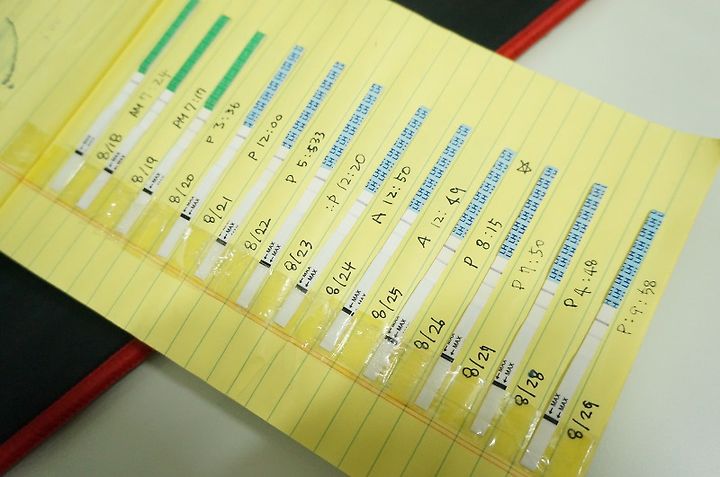 8/18 AM 7:24
8/19 PM 7:17
8/20 P 3:36
8/21 P 12:00
8/22 P 5:533
8/23 :P 12:20
8/24 A 12:50
8/25 A 12:49
8/26 P 8:15 ☆
8/29 P 7:50
8/28 P 4:48
8/29 P:9:58
← MAX
← MAX
← MAX
← MAX
← MAX
← MAX
← MAX
← MAX
← MAX
← MAX
← MAX
← MAX
LH LH LH LH